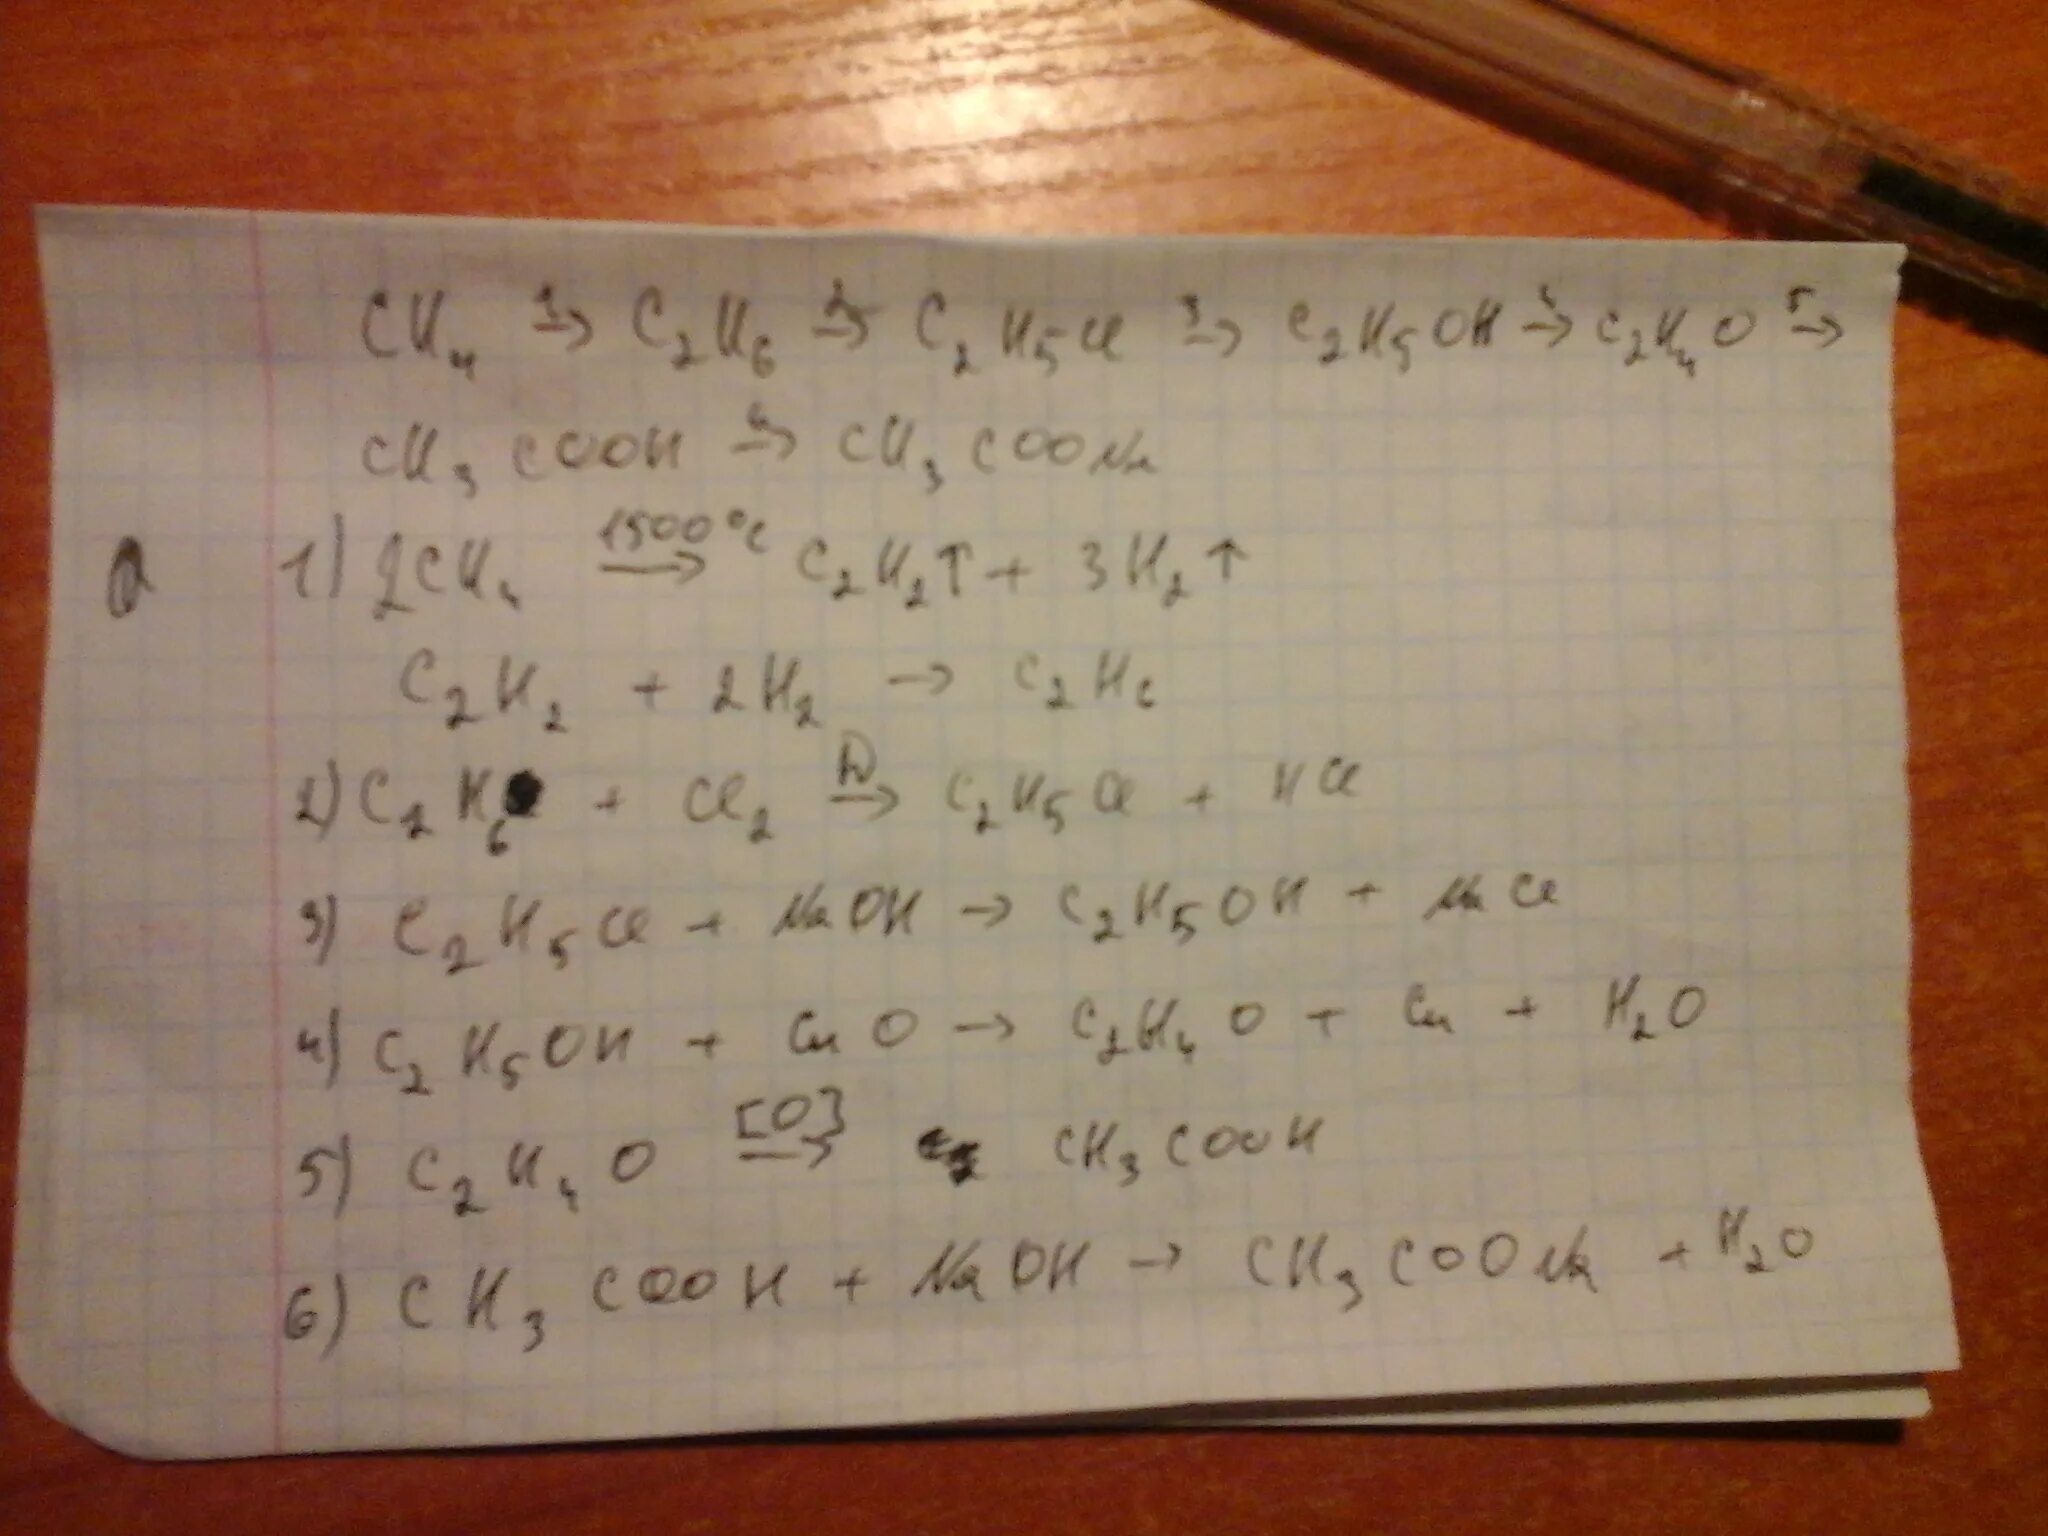 CH₄ →¹ C₂H₆ →² C₂H₅Cl →³ C₂H₅OH →⁴ C₂H₄O →⁵
CH₃COOH →⁶ CH₃COONa
1) 2CH₄ →(1500°C) C₂H₂↑ + 3H₂↑
C₂H₂ + 2H₂ → C₂H₆
2) C₂H₆ + Cl₂ →(hν) C₂H₅Cl + HCl
3) C₂H₅Cl + NaOH → C₂H₅OH + NaCl
4) C₂H₅OH + CuO → C₂H₄O + Cu + H₂O
5) C₂H₄O →[O] CH₃COOH
6) CH₃COOH + NaOH → CH₃COONa + H₂O